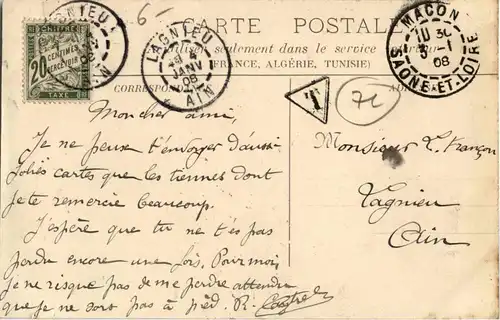 6
CARTE POSTALE
utilisée seulement dans le service
(FRANCE, ALGÉRIE, TUNISIE)
CORRESPONDANCE
CHIFFRE
20
CENTIMES
A PERCEVOIR
TAXE
LAGNIEU
AIN
LAGNIEU
JANV
08
AIN
MACON
10 30
3 - 1
08
SAONE-ET-LOIRE
T
72
Mon cher ami,
Je ne peux t'envoyer d'aussi
jolies cartes que les tiennes dont
je te remercie beaucoup.
J'espère que tu ne t'es pas
perdu encore une fois. Pour moi
je ne risque pas de me perdre attendu
que je ne sort pas à pied. R.
Monsieur L. François
Lagnieu
Ain